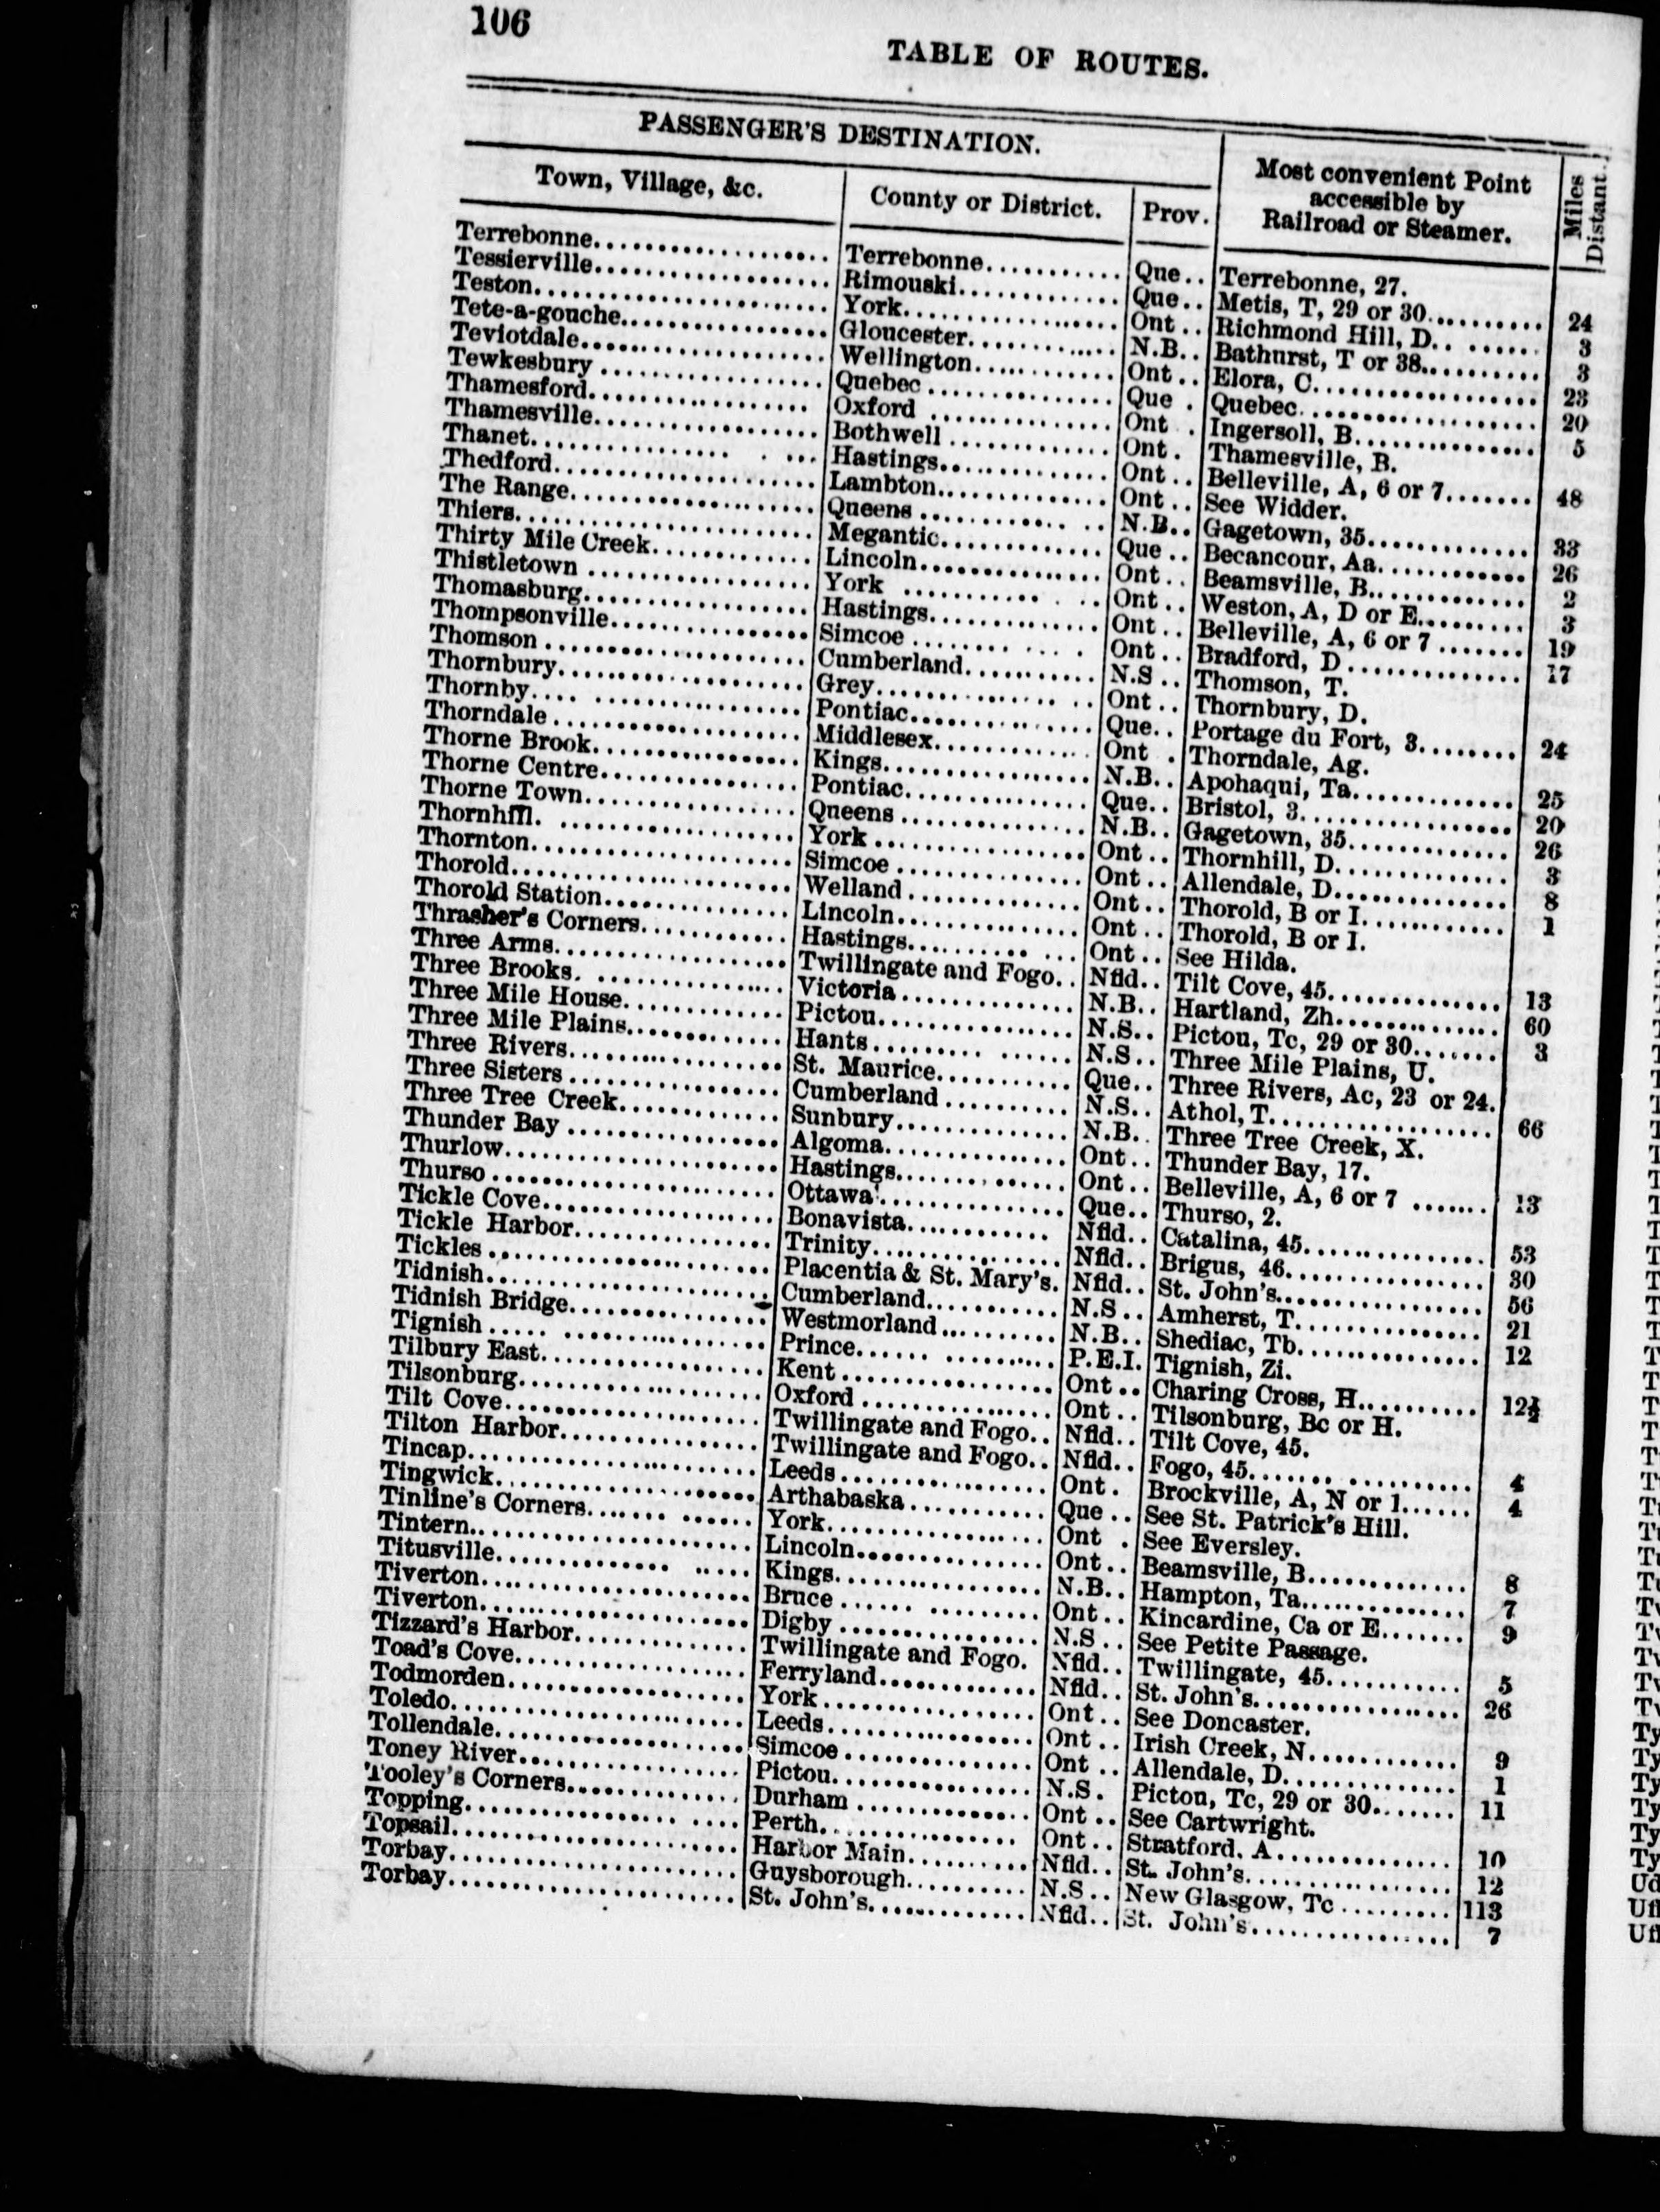 106
TABLE OF ROUTES.
PASSENGER'S DESTINATION.
Most convenient Point accessible by Railroad or Steamer.
Miles Distant.
Town, Village, &c. County or District. Prov.
Terrebonne.......... Terrebonne.......... Que.. Terrebonne, 27.
Tessierville.......... Rimouski.......... Que.. Metis, T, 29 or 30.......... 24
Teston.......... York.......... Ont.. Richmond Hill, D.......... 3
Tete-a-gouche.......... Gloucester.......... N.B.. Bathurst, T or 38.......... 3
Teviotdale.......... Wellington.......... Ont.. Elora, C.......... 23
Tewkesbury.......... Quebec.......... Que. Quebec.......... 20
Thamesford.......... Oxford.......... Ont. Ingersoll, B.......... 5
Thamesville.......... Bothwell.......... Ont. Thamesville, B.
Thanet.......... Hastings.......... Ont.. Belleville, A, 6 or 7....... 48
Thedford.......... Lambton.......... Ont.. See Widder.
The Range.......... Queens.......... N.B.. Gagetown, 35.......... 33
Thiers.......... Megantic.......... Que.. Becancour, Aa.......... 26
Thirty Mile Creek.......... Lincoln.......... Ont.. Beamsville, B.......... 2
Thistletown.......... York.......... Ont.. Weston, A, D or E.......... 3
Thomasburg.......... Hastings.......... Ont.. Belleville, A, 6 or 7....... 19
Thompsonville.......... Simcoe.......... Ont.. Bradford, D.......... 17
Thomson.......... Cumberland.......... N.S.. Thomson, T.
Thornbury.......... Grey.......... Ont.. Thornbury, D.
Thornby.......... Pontiac.......... Que.. Portage du Fort, 3........ 24
Thorndale.......... Middlesex.......... Ont. Thorndale, Ag.
Thorne Brook.......... Kings.......... N.B.. Apohaqui, Ta.......... 25
Thorne Centre.......... Pontiac.......... Que.. Bristol, 3.......... 20
Thorne Town.......... Queens.......... N.B.. Gagetown, 35.......... 26
Thornhill.......... York.......... Ont.. Thornhill, D.......... 3
Thornton.......... Simcoe.......... Ont.. Allendale, D.......... 8
Thorold.......... Welland.......... Ont.. Thorold, B or I.......... 1
Thorold Station.......... Lincoln.......... Ont.. Thorold, B or I.
Thrasher's Corners.......... Hastings.......... Ont.. See Hilda.
Three Arms.......... Twillingate and Fogo.. Nfld.. Tilt Cove, 45.......... 13
Three Brooks.......... Victoria.......... N.B.. Hartland, Zh.......... 60
Three Mile House.......... Pictou.......... N.S.. Pictou, Tc, 29 or 30....... 3
Three Mile Plains.......... Hants.......... N.S.. Three Mile Plains, U.
Three Rivers.......... St. Maurice.......... Que.. Three Rivers, Ac, 23 or 24.
Three Sisters.......... Cumberland.......... N.S.. Athol, T.......... 66
Three Tree Creek.......... Sunbury.......... N.B.. Three Tree Creek, X.
Thunder Bay.......... Algoma.......... Ont.. Thunder Bay, 17.
Thurlow.......... Hastings.......... Ont.. Belleville, A, 6 or 7....... 13
Thurso.......... Ottawa.......... Que.. Thurso, 2.
Tickle Cove.......... Bonavista.......... Nfld.. Catalina, 45.......... 53
Tickle Harbor.......... Trinity.......... Nfld.. Brigus, 46.......... 30
Tickles.......... Placentia & St. Mary's. Nfld.. St. John's.......... 56
Tidnish.......... Cumberland.......... N.S.. Amherst, T.......... 21
Tidnish Bridge.......... Westmorland.......... N.B.. Shediac, Tb.......... 12
Tignish.......... Prince.......... P.E.I. Tignish, Zi.
Tilbury East.......... Kent.......... Ont.. Charing Cross, H.......... 12½
Tilsonburg.......... Oxford.......... Ont.. Tilsonburg, Bc or H.
Tilt Cove.......... Twillingate and Fogo.. Nfld.. Tilt Cove, 45.
Tilton Harbor.......... Twillingate and Fogo.. Nfld.. Fogo, 45.......... 4
Tincap.......... Leeds.......... Ont. Brockville, A, N or 1...... 4
Tingwick.......... Arthabaska.......... Que.. See St. Patrick's Hill.
Tinline's Corners.......... York.......... Ont. See Eversley.
Tintern.......... Lincoln.......... Ont.. Beamsville, B.......... 8
Titusville.......... Kings.......... N.B.. Hampton, Ta.......... 7
Tiverton.......... Bruce.......... Ont.. Kincardine, Ca or E....... 9
Tiverton.......... Digby.......... N.S.. See Petite Passage.
Tizzard's Harbor.......... Twillingate and Fogo. Nfld.. Twillingate, 45.......... 5
Toad's Cove.......... Ferryland.......... Nfld.. St. John's.......... 26
Todmorden.......... York.......... Ont.. See Doncaster.
Toledo.......... Leeds.......... Ont.. Irish Creek, N.......... 9
Tollendale.......... Simcoe.......... Ont.. Allendale, D.......... 1
Toney River.......... Pictou.......... N.S. Pictou, Tc, 29 or 30....... 11
Tooley's Corners.......... Durham.......... Ont.. See Cartwright.
Topping.......... Perth.......... Ont.. Stratford. A.......... 10
Topsail.......... Harbor Main.......... Nfld.. St. John's.......... 12
Torbay.......... Guysborough.......... N.S.. New Glasgow, Tc.......... 113
Torbay.......... St. John's.......... Nfld.. St. John's.......... 7